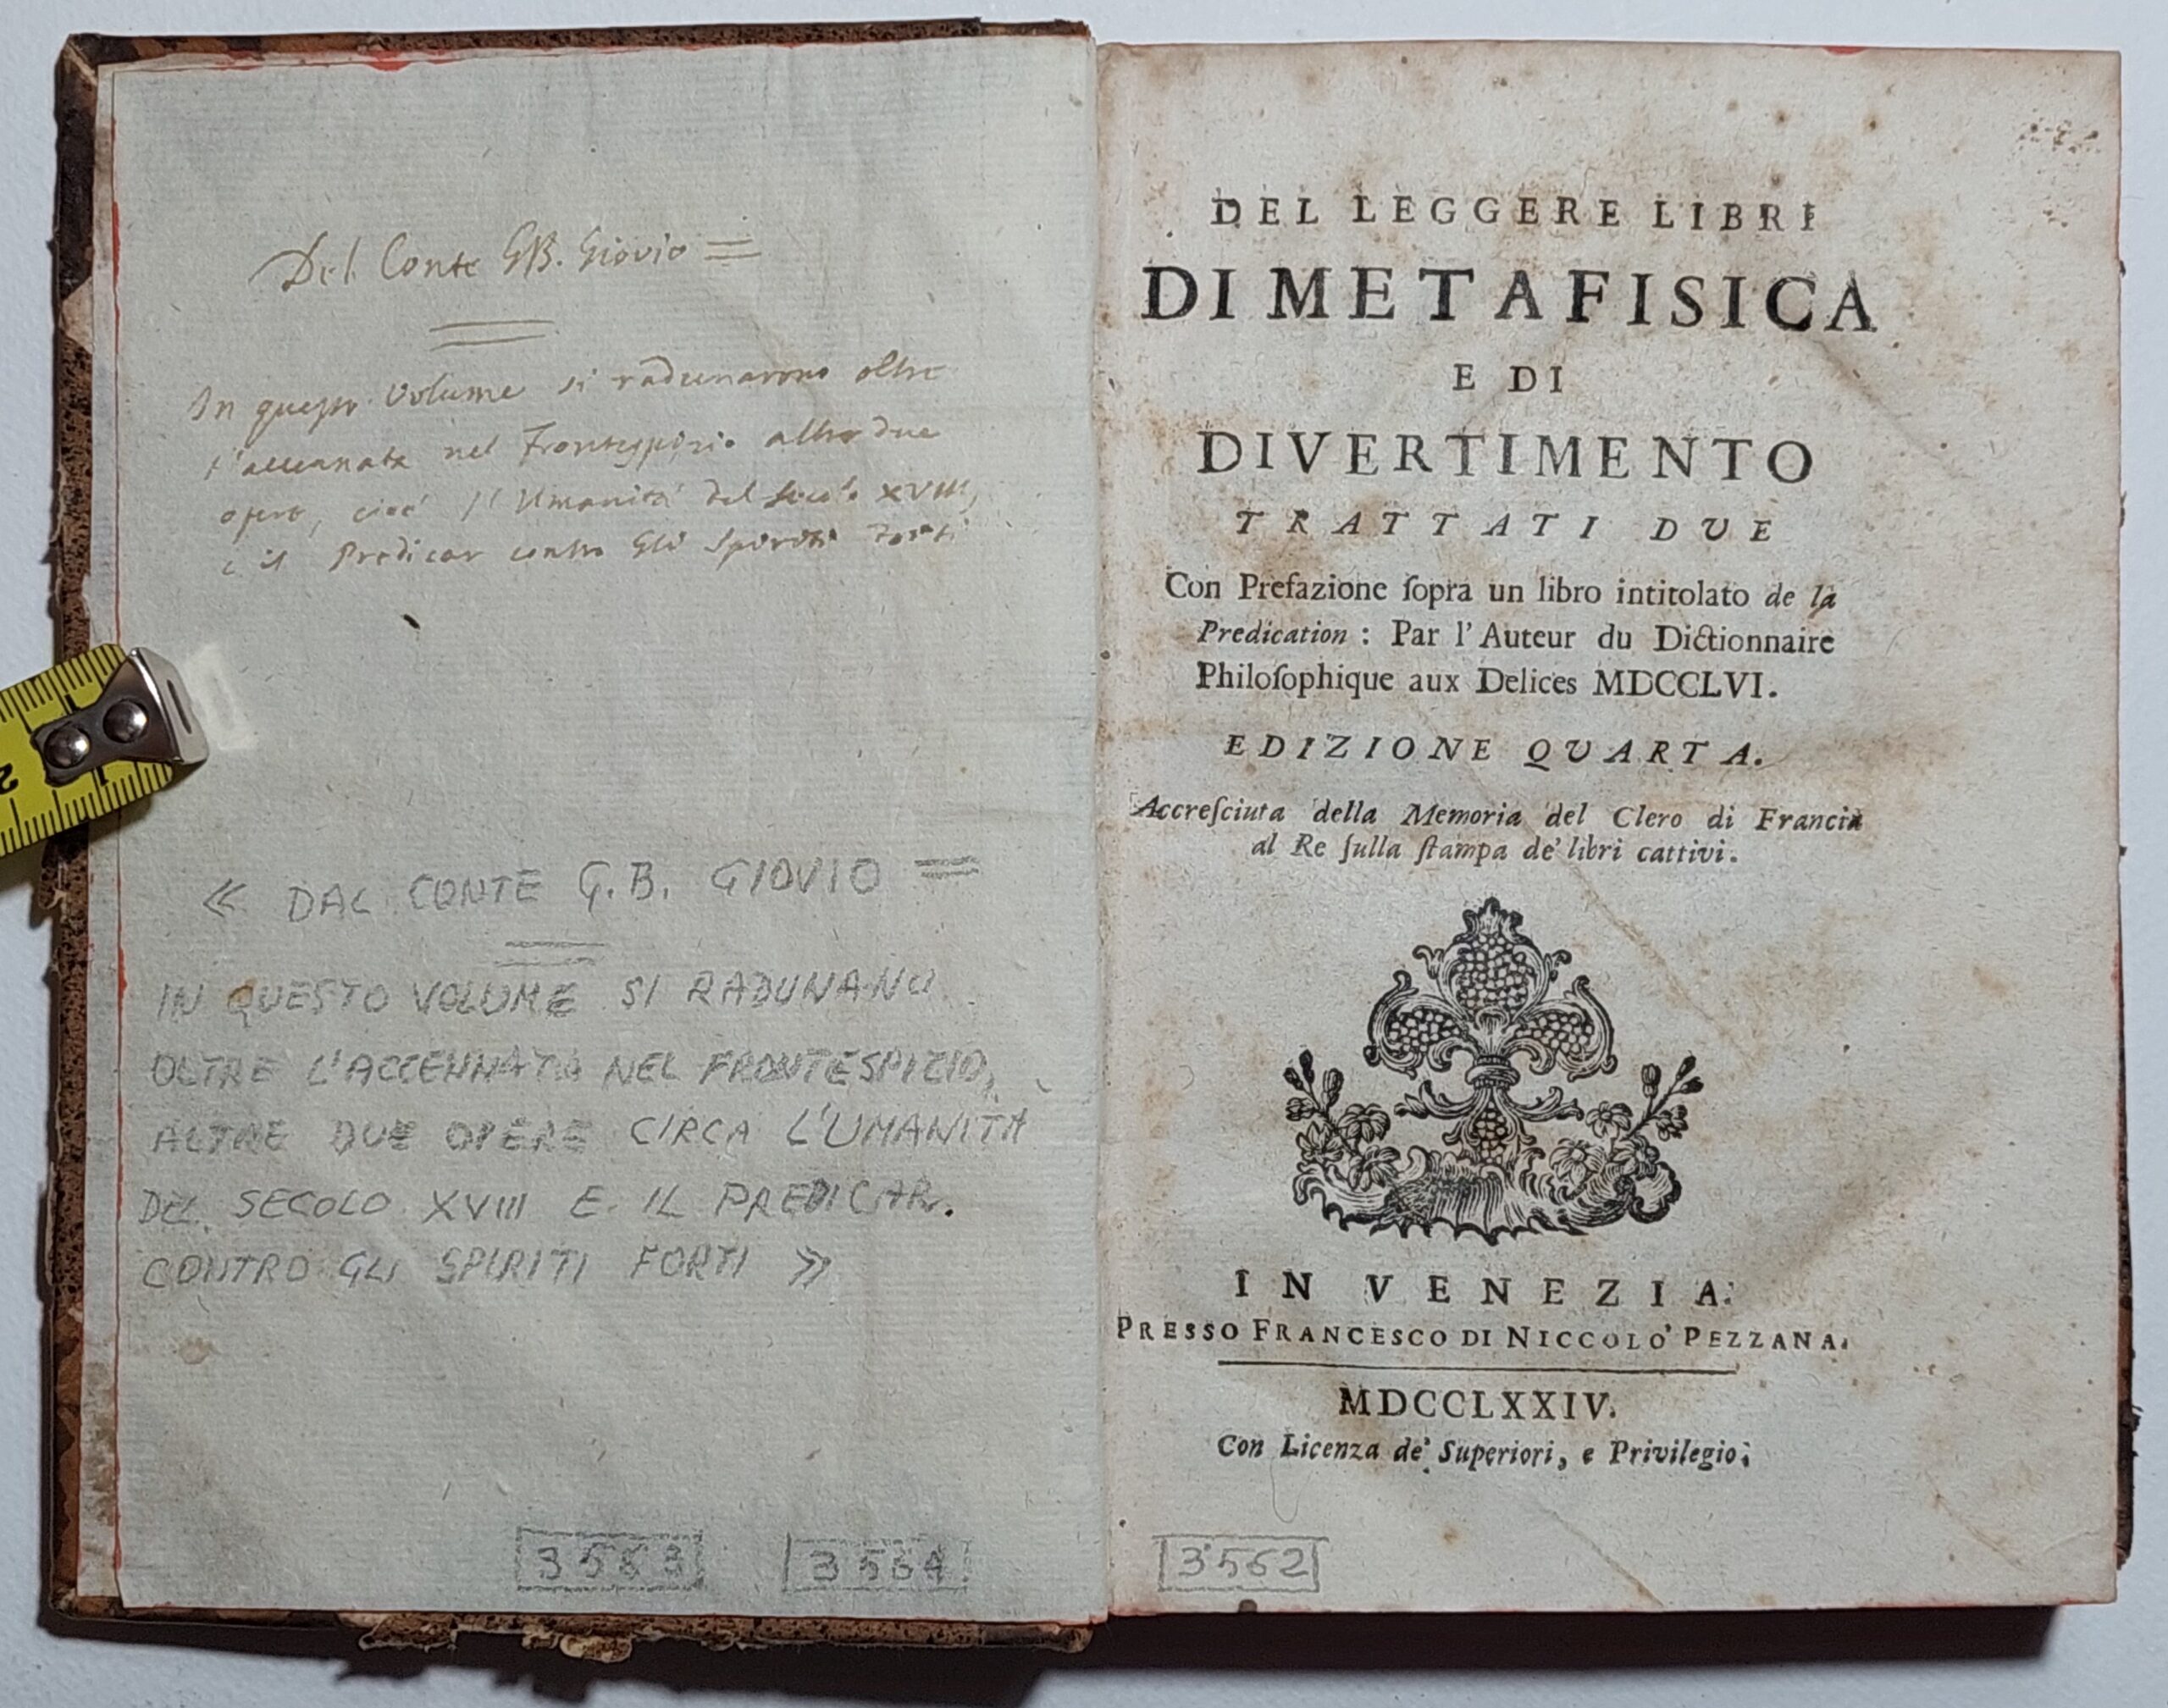 Del Conte GB. Giovio =
In questo Volume si radunarono oltre
l'accennata nel Frontispizio altre due
opere, cioè l'Umanità del Secolo XVIII,
e il Predicar contro Gli Spiriti Forti
« DAL CONTE G.B. GIOVIO =
IN QUESTO VOLUME SI RADUNANO
OLTRE L'ACCENNATA NEL FRONTESPIZIO,
ALTRE DUE OPERE CIRCA L'UMANITÀ
DEL SECOLO XVIII E IL PREDICAR.
CONTRO GLI SPIRITI FORTI »
3563 3564
DEL LEGGERE LIBRI
DI METAFISICA
E DI
DIVERTIMENTO
TRATTATI DUE
Con Prefazione ſopra un libro intitolato de la
Predication : Par l'Auteur du Dictionnaire
Philoſophique aux Delices MDCCLVI.
EDIZIONE QUARTA.
Accreſciuta della Memoria del Clero di Francia
al Re ſulla ſtampa de' libri cattivi.
IN VENEZIA.
PRESSO FRANCESCO DI NICCOLO' PEZZANA.
MDCCLXXIV.
Con Licenza de' Superiori, e Privilegio.
3562
1
2